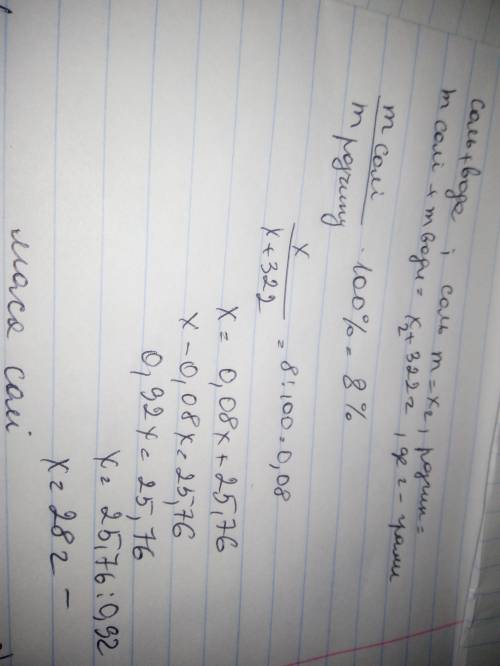 соль+вода ; соль m=xг, розчин=
m солі + m води = xг+322г, де г - грами
m солі
m розчину
· 100% = 8%
x
x+322
= 8:100=0,08
x = 0,08x+25,76
x-0,08x=25,76
0,92x=25,76
x=25,76:0,92
x=28г -
маса солі